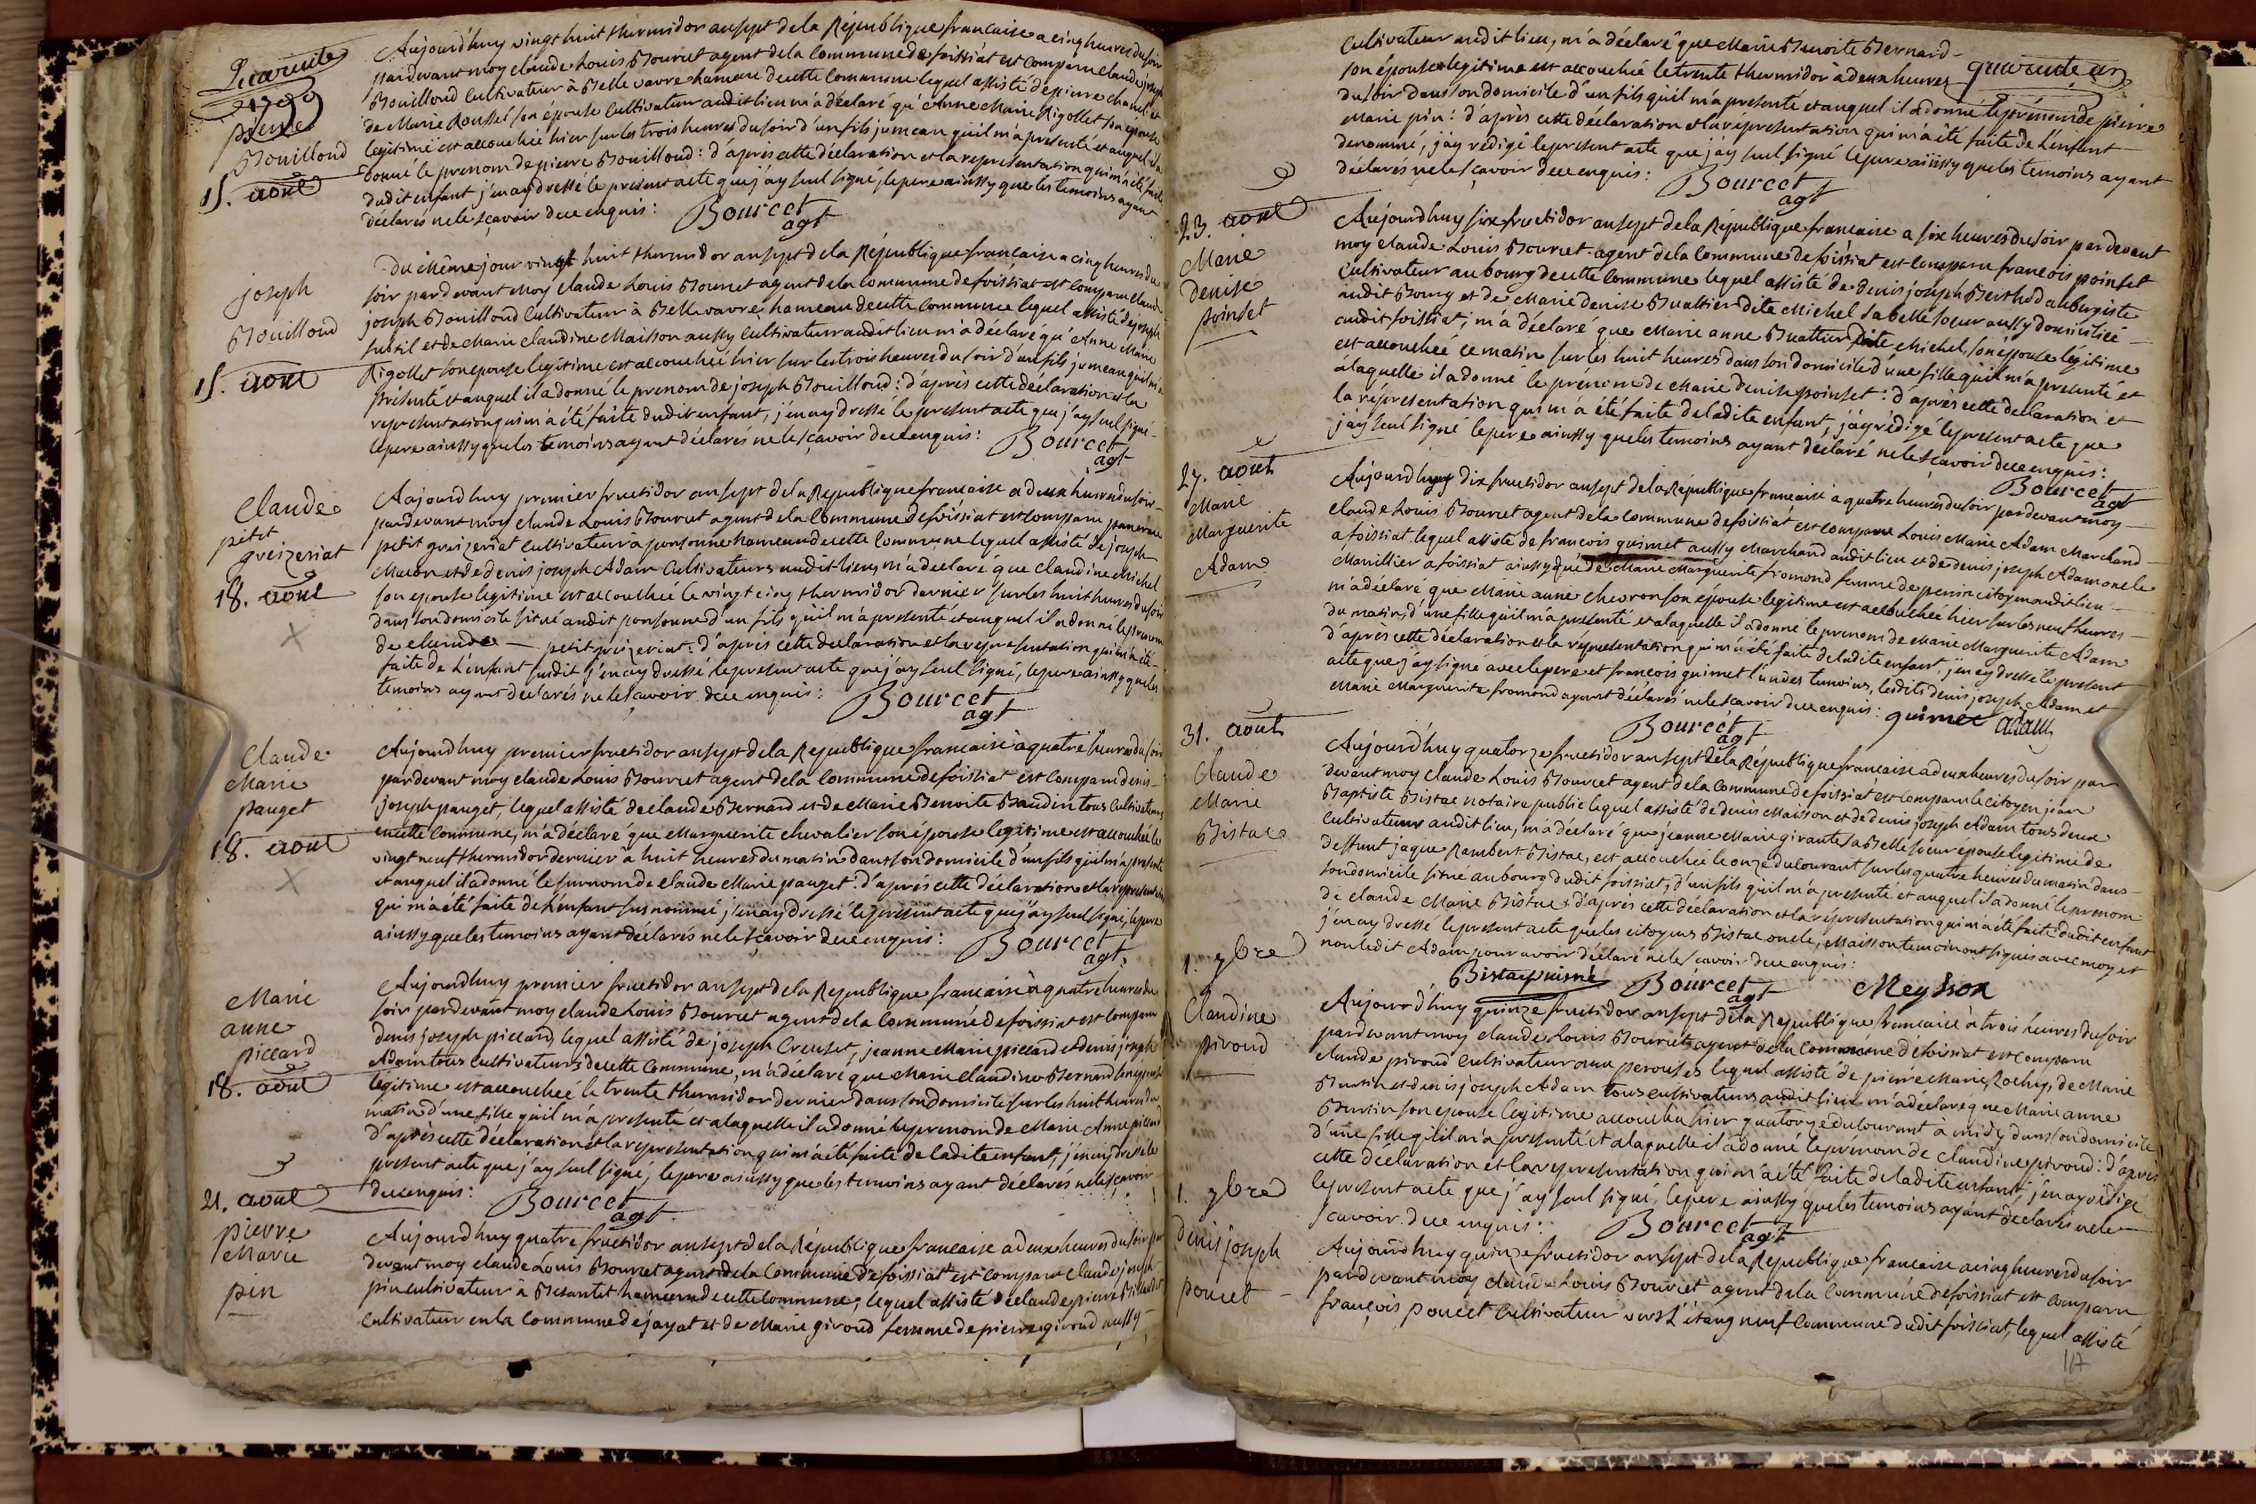 Quarante
1799
pierre
Bouilloud
15. aout
Aujourd'huy vingt huit thermidor an sept de la République francaise a cinq heures du soir
pardevant moy claude Louis Bourcet agent de la Commune de foissiat est comparu claude joseph
Bouilloud cultivateur à Bellevavre hameau de cette Commune lequel assisté de pierre chanel et
de Marie Roussel son épouse cultivateur audit lieu m'a déclaré qu'Anne Marie Rigollet son epouse
legitime est accouchée hier sur les trois heures du soir d'un fils jumeau qu'il m'a presenté et auquel il a
donné le prenom de pierre Bouilloud: d'après cette déclaration et la representation qui m'a été faite
dudit enfant j'en ay dressé le présent acte que j'ay seul signé, le pere ainssy que les temoins ayant
déclarés ne le sçavoir de ce enquis:
Bourcet
agt
joseph
Bouilloud
15. aout
Du même jour vingt huit thermidor an sept de la République francaise a cinq heures du
soir pardevant Moy claude Louis Bourcet agent de la commune de foissiat est comparu claude
joseph Bouilloud cultivateur à Bellevavre hameau de cette commune lequel assisté de joseph
subtil et de Marie claudine Maisson aussy cultivateur audit lieu m'a déclaré qu'Anne Marie
Rigollet son epouse legitime est accouchée hier sur les trois heures du soir d'un fils jumeau qu'il m'a
présenté et auquel il a donné le prenom de joseph Bouilloud: d'après cette déclaration et la
representation qui m'a été faite dudit enfant, j'en ay dressé le present acte que j'ay seul signé
le pere ainssy que les temoins ayant déclarés ne le sçavoir de ce enquis:
Bourcet
agt
Claude
petit
greizeriat
18. aout
Aujourd'huy premier fructidor an sept de la Republique francaise a deux heures du soir
pardevant moy claude Louis Bourcet agent de la Commune de foissiat est comparu
petit greizeriat cultivateur à ponsonne hameau de cette Commune lequel assisté de joseph
et de denis joseph Adam cultivateurs audit lieu, m'a déclaré que claudine Michel
son epouse legitime est accouchée le vingt cinq thermidor dernier sur les huit heures du soir
dans son domicile situé audit ponsonne d'un fils qu'il m'a presenté et auquel il a donné le prenom
de claude petit greizeriat: d'après cette déclaration et la representation qui m'a été
faite de L'enfant susdit j'en ay dressé le present acte que j'ay seul signé, le pere ainssy que les
temoins ayant declarés ne le sçavoir de ce enquis:
Bourcet
agt
Claude
Marie
pauget
18. aout
Aujourd'huy premier fructidor an sept de la Republique francaise à quatre heures du soir
pardevant moy claude Louis Bourcet agent de la Commune de foissiat est comparu denis
joseph pauget, lequel assisté de claude Bernard et de Marie Benoite Baudin tous cultivateurs
en cette Commune, m'a déclaré que Marguerite chevalier son épouse legitime est accouchée le
vingt neuf thermidor dernier à huit heures du matin dans son domicile d'un fils qu'il m'a presenté
et auquel il a donné le surnom de claude Marie pauget: d'après cette déclaration et la representation
qui m'a été faite de L'enfant susnommé j'en ay dressé le present acte que j'ay seul signé, le pere
ainssy que les temoins ayant déclarés ne le sçavoir de ce enquis:
Bourcet
agt.
Marie
anne
piccard
18. aout
Aujourd'huy premier fructidor an sept de la Republique francaise à quatre heures du
soir pardevant moy claude Louis Bourcet agent de la Commune de foissiat est comparu
denis joseph piccard, lequel assisté de joseph Creuset, jeanne Marie piccard et denis joseph
Adam tous cultivateurs de cette Commune, m'a déclaré que Marie claudine Bernard son epouse
légitime est accouchée le trente thermidor dernier dans son domicile sur les huit heures du
matin d'une fille qu'il m'a presenté et a laquelle il a donné le prenom de Marie Anne piccard
d'après cette déclaration et la representation qui m'a été faite de ladite enfant, j'en ay dressé le
present acte que j'ay seul signé, le pere ainssy que les temoins ayant déclarés ne le sçavoir
de ce enquis:
Bourcet
agt
21. aout
pierre
Marie
pin
Aujourd'huy quatre fructidor an sept de la République francaise a deux heures du soir par
devant moy claude Louis Bourcet agent de la Commune de foissiat est comparu claude joseph
pin cultivateur à Besantet hameau de cette Commune, lequel assisté de claude pierre
cultivateur en la Commune de jayat et de Marie giroud femme de pierre giroud aussy
quarante un
cultivateur audit lieu, m'a déclaré que Marie Benoite Bernard
son épouse legitime est accouchée le trente thermidor à deux heures
du soir dans son domicile d'un fils qu'il m'a presenté et auquel il a donné le prénom de pierre
Marie pin: d'après cette déclaration et la réprésentation qui m'a été faite de L'enfant
denommé, j'ay rédigé le present acte que j'ay seul signé le pere ainssy que les temoins ayant
déclarés ne le sçavoir de ce enquis:
Bourcet
agt
23. aout
Marie
denise
poinset
Aujourd'huy six fructidor an sept de la République francaise a six heures du soir par devant
moy claude Louis Bourcet agent de la Commune de foissiat est comparu francois poinset
cultivateur au bourg de cette Commune lequel assisté de denis joseph Berthod aubergiste
audit Bourg et de Marie denise Buattier dite Michel sa belle soeur aussy domiciliée
audit foissiat, m'a déclaré que Marie anne Buattier dite Michel, son épouse légitime
est accouchée ce matin sur les huit heures dans son domicile d'une fille qu'il m'a presenté et
a laquelle il a donné le prénom de Marie denise poinset: d'après cette declaration et
la répresentation qui m'a été faite de ladite enfant, j'ay rédigé le present acte que
j'ay seul signé le pere ainssy que les temoins ayant déclaré ne le sçavoir de ce enquis:
Bourcet
agt
27. aout
Marie
Marguerite
Adam
Aujourd'huy dix fructidor an sept de la Republique française a quatre heures du soir pardevant moy
claude Louis Bourcet agent de la commune de foissiat est comparu Louis Marie Adam Marchand
a foissiat lequel assisté de francois guimet aussy Marchand audit lieu et de denis joseph Adam oncle
Manillier a foissiat ainssy que de Marie Marguerite fromond femme de perrin citoyen audit lieu
m'a déclaré que Marie anne chevron son epouse legitime est accouchée hier sur les neuf heures
du matin, d'une fille qu'il m'a presenté et a laquelle il a donné le prenom de Marie Marguerite Adam
d'après cette déclaration et la réprésentation qui m'a été faite de ladite enfant, j'en ay dressé le présent
acte que j'ay signé avec le pere et françois guimet l'un des temoins, lesdits denis joseph Adam et
Marie Marguerite fromond ayant déclarés ne le sçavoir de ce enquis:
guimet adam
Bourcet
agt
31. aout
Claude
Marie
Bistac
Aujourd'huy quatorze fructidor an sept de la République francaise a deux heures du soir par
devant moy claude Louis Bourcet agent de la Commune de foissiat est comparu le citoyen jean
Baptiste Bistac notaire public lequel assisté de denis Maisson et de denis joseph Adam tous deux
cultivateurs audit lieu, m'a déclaré que jeanne Marie girante sa Belle soeur epouse legitime de
deffunt jaque Rambert Bistac, est accouchée le onze du courant sur les quatre heures du matin dans
son domicile situé au bourg dudit foissiat, d'un fils qu'il m'a presenté et auquel il a donné le prenom
de claude Marie Bistac: d'après cette déclaration et la réprésentation qui m'a été faite dudit enfant
j'en ay dressé le present acte que les citoyens Bistac oncle, Maisson temoin ont signés avec moy et
non ledit Adam pour avoir déclaré ne le sçavoir de ce enquis:
Bistac puisné Bourcet
agt
Meysson
1. 7bre
Claudine
piroud
Aujourd'huy quinze fructidor an sept de la Republique francaise à trois heures du soir
pardevant moy claude Louis Bourcet agent de la Commune de foissiat est comparu
claude piroud cultivateur aux perouses lequel assisté de pierre Marie Rochy, de Marie
Burtin et denis joseph Adam tous cultivateurs audit lieu m'a déclaré que Marie anne
Burtin son epouse légitime accoucha hier quatorze du courant a midy dans son domicile
d'une fille qu'il m'a presenté et a laquelle il a donné le prénom de claudine piroud: d'après
cette déclaration et la representation qui m'a été faite de ladite enfant, j'en ay rédigé
le present acte que j'ay seul signé, le pere ainssy que les temoins ayant déclarés ne le
scavoir de ce enquis:
Bourcet
agt
1. 7bre
denis joseph
poncet
Aujourd'huy quinze fructidor an sept de la Republique francaise a cinq heures du soir
pardevant moy claude Louis Bourcet agent de la Commune de foissiat est comparu
françois poncet cultivateur vers L'étang neuf commune dudit foissiat, lequel assisté
117